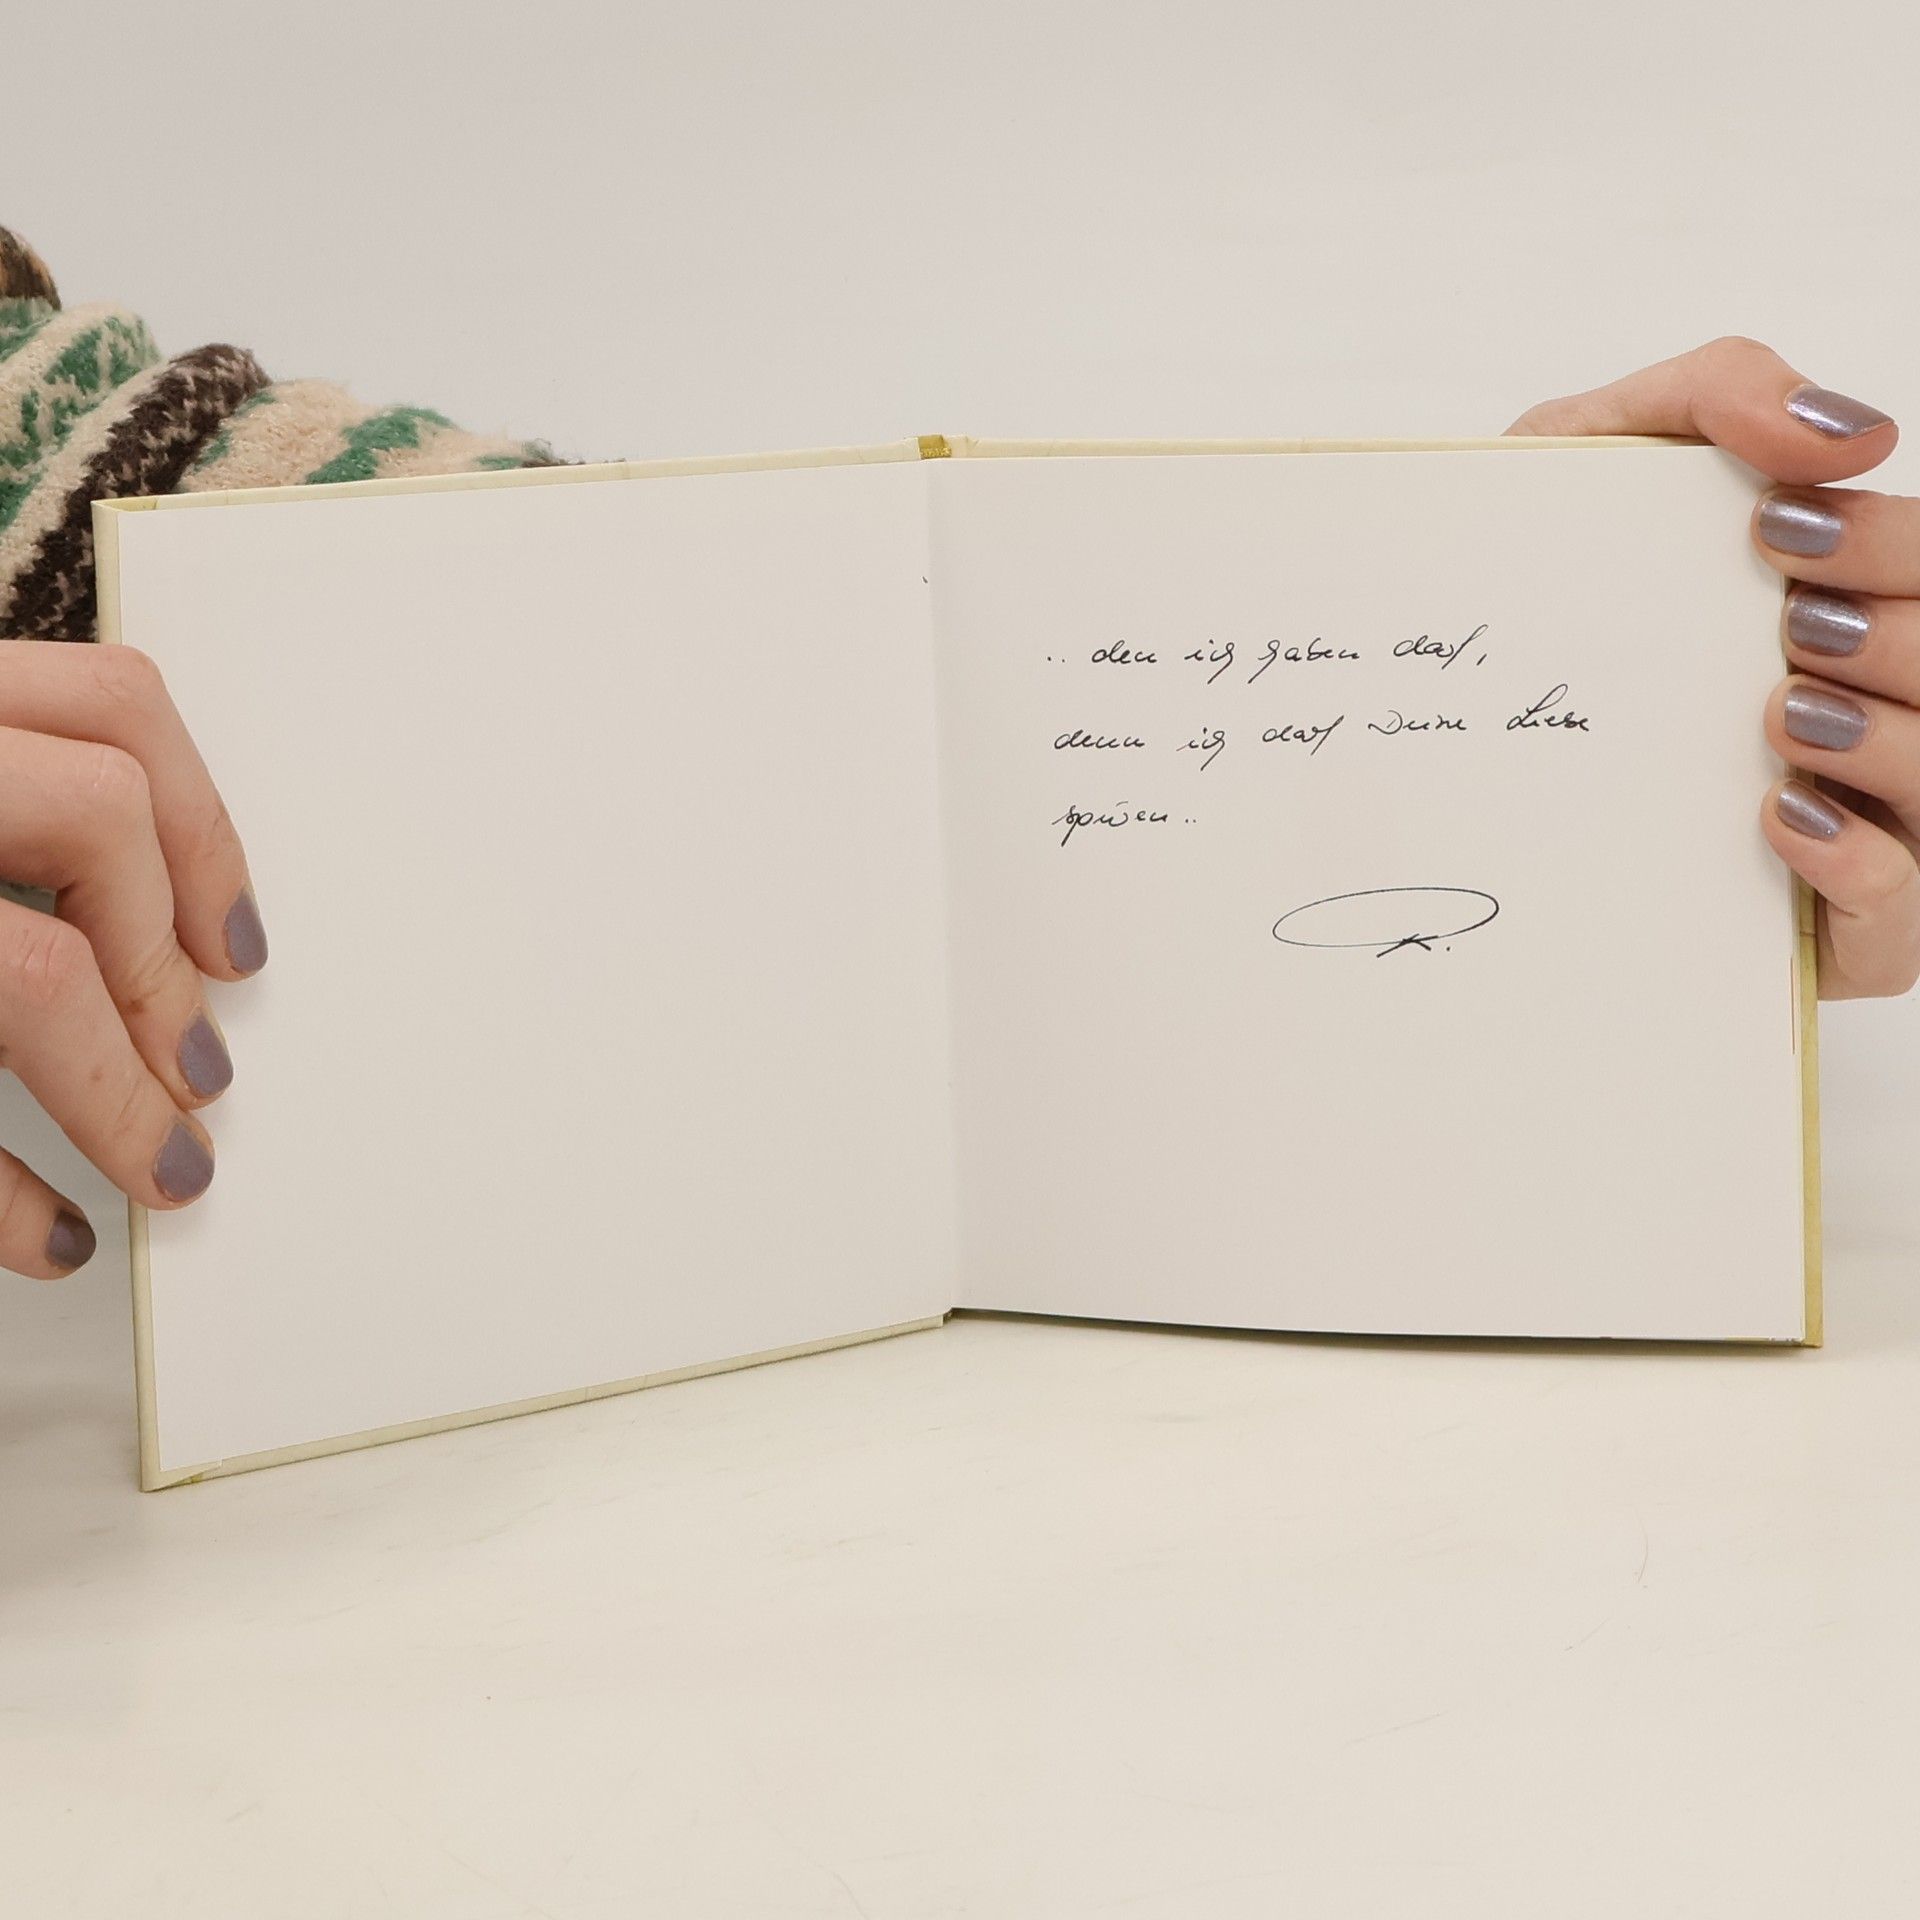 .. den ich haben darf,
denn ich darf Deine Liebe
spüren ..
K.